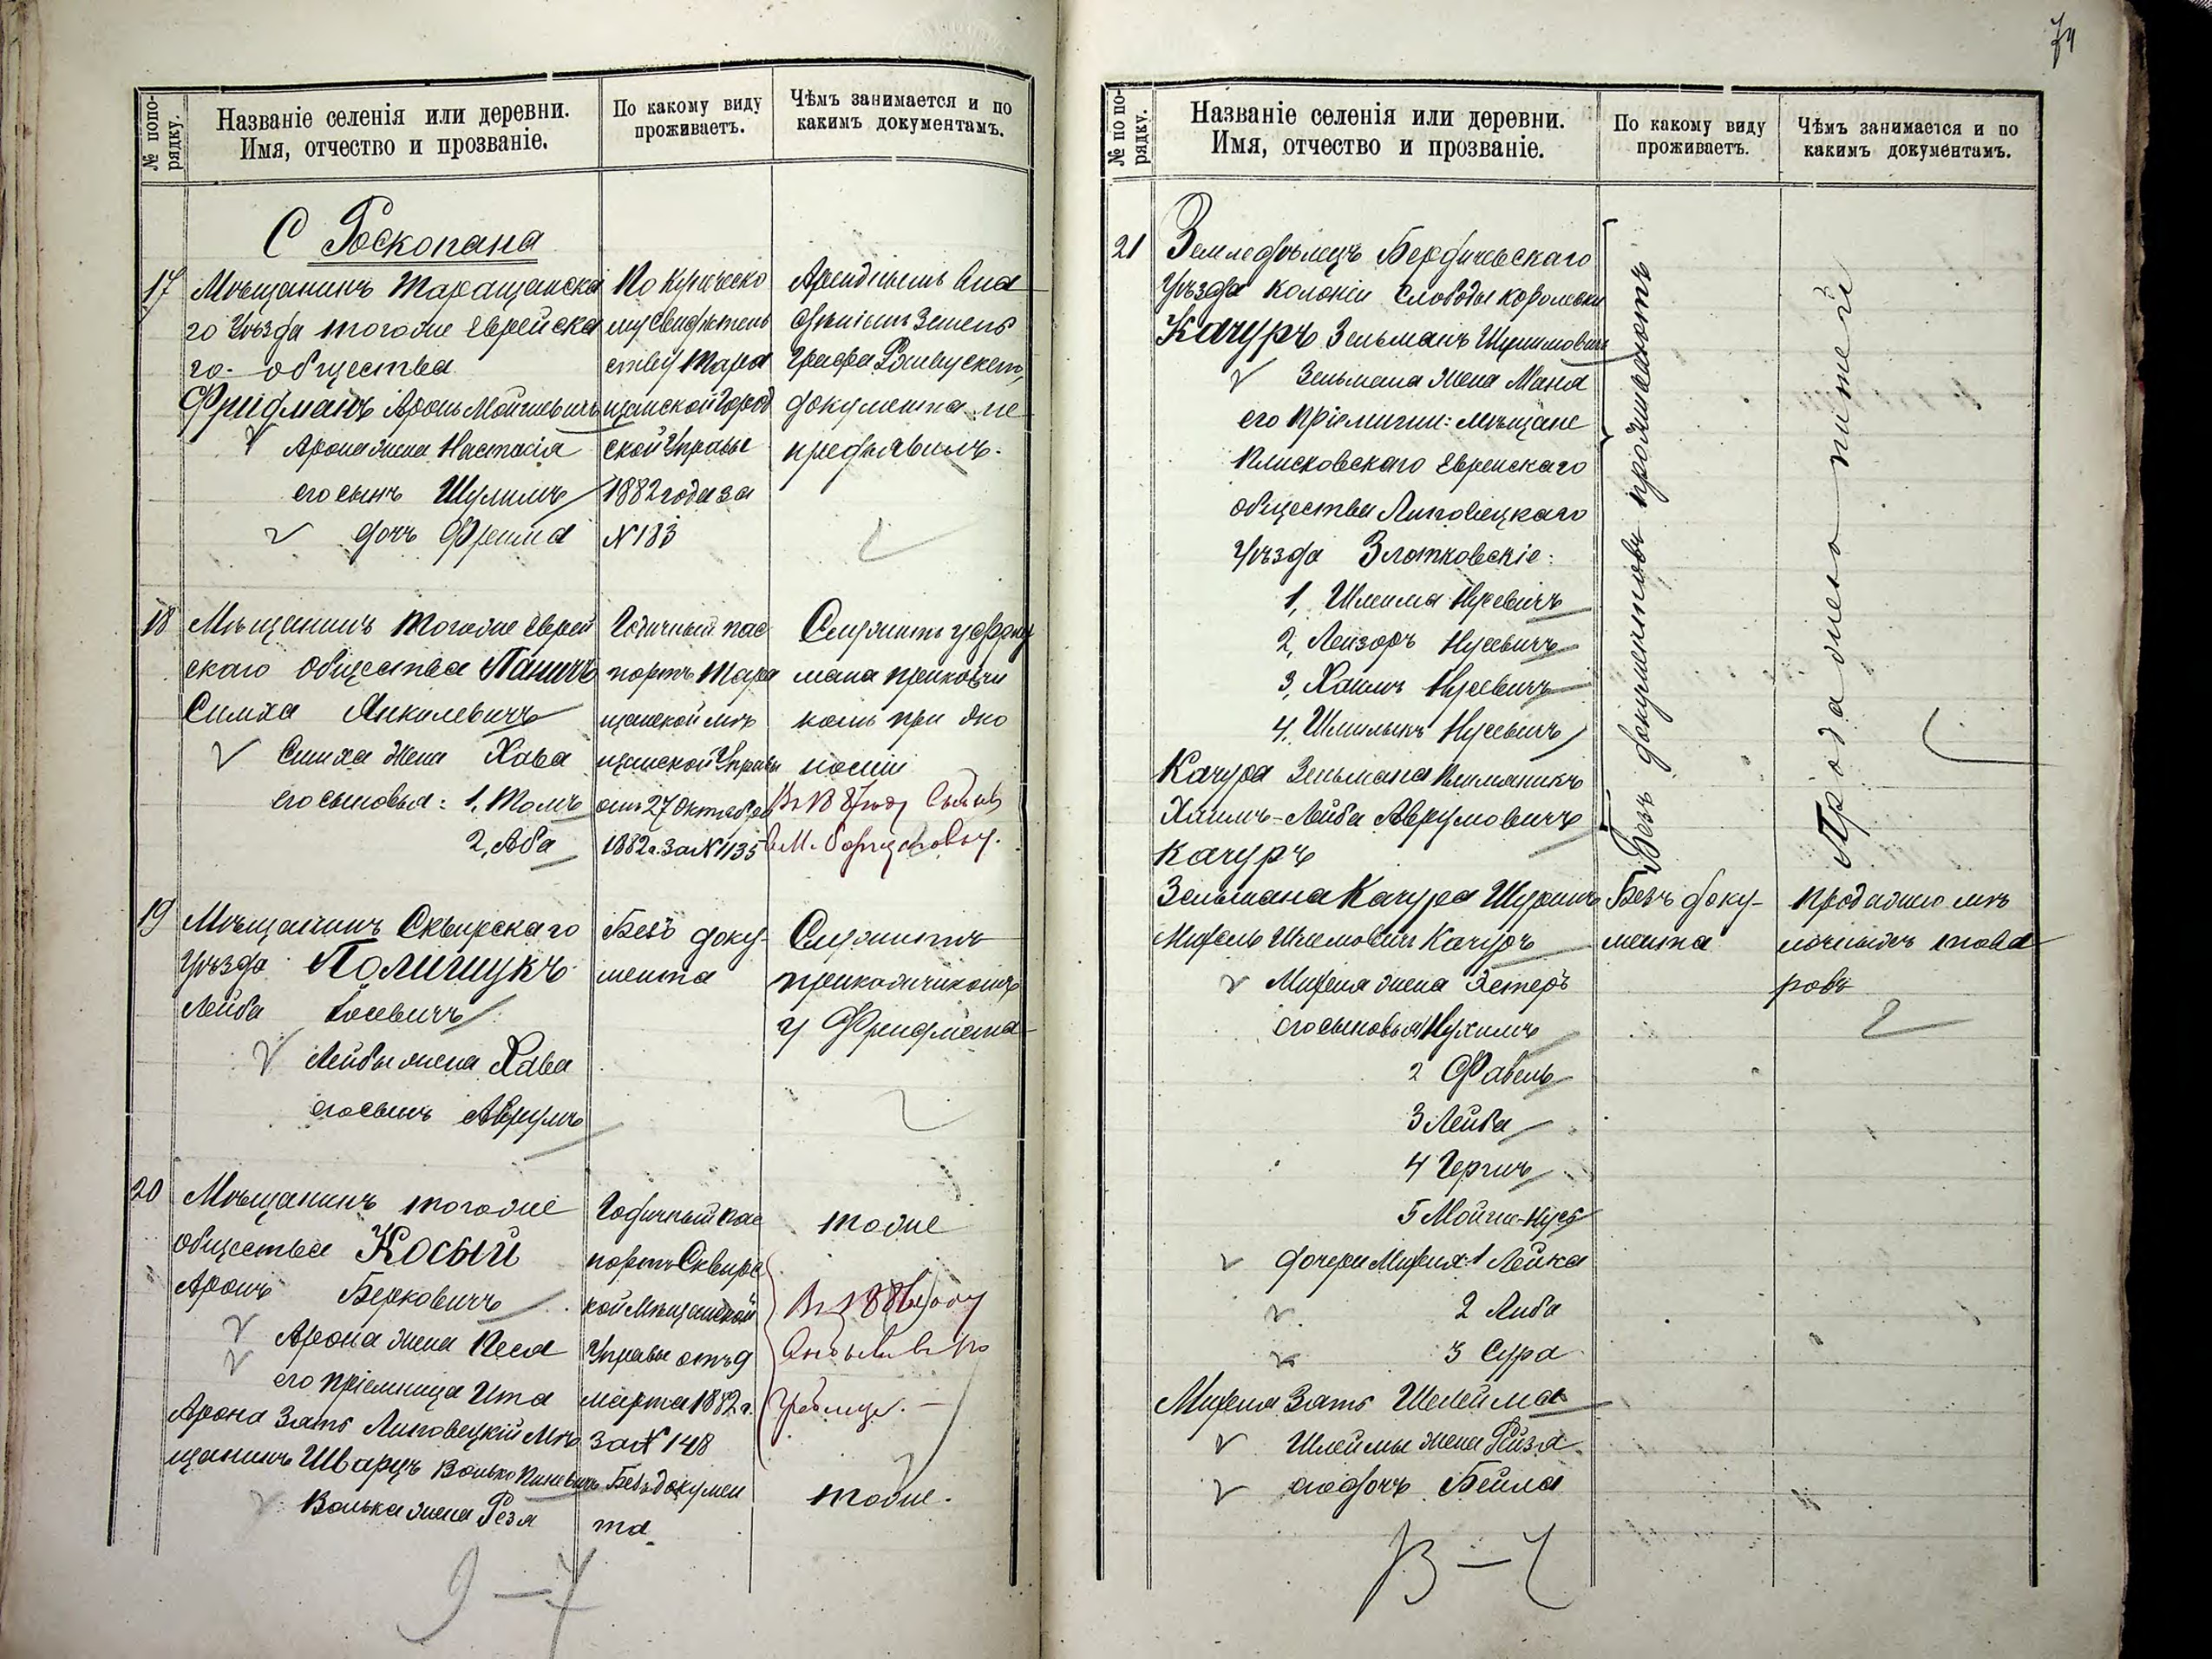 № попо-
рядку.
Названіе селенія или деревни.
Имя, отчество и прозваніе.
По какому виду
проживаетъ.
Чѣмъ занимается и по
какимъ документамъ.
С Роскопана
17
Мѣщанинъ Таращанска
го Уѣзда тогоже Еврейска
го общества
Фридманъ Аронъ Мойшевичъ
Арона жена Настасія
его сынъ Шулимъ
дочь Фрейма
По Купческо
му Свидѣтель
ству Тара
щанской Город
ской Управы
1882 года за
№ 183
Арендуетъ
Графа
документа не
предъявилъ.
18
Мѣщанинъ тогоже Еврей
скаго Общества Паничъ
Симха Янкилевичъ
Симха жена Хава
его сыновья: 1, Толъ
2, Аба
Годичный пас
портъ Тара
щанской мѣ
щанской Управы
отъ 27 Октября
1882 г. за № 1135
Служитъ у Фрид
мана прикащи
комъ при эко
номіи
19
Мѣщанинъ Сквирскаго
Уѣзда Полищукъ
Лейба Іосевичъ
Лейбы жена Хава
его сынъ Аврумъ
Безъ доку-
мента
Служитъ
прикажчикомъ
у Фридмана
20
Мѣщанинъ тогоже
общества Косый
Аронъ Берковичъ
Арона жена Песа
его пріемница Ита
Арона Зать Липовецкій Мѣ
щанинъ Шварцъ Волько Пиневичъ
Волька жена Рези
Годичный пас
портъ Сквирс
кой Мѣщанской
Управы отъ 9
марта 1882 г.
За № 148
Безъ докумен
та
тоже
тоже.
9 — 7
74
№ по по-
рядку.
Названіе селенія или деревни.
Имя, отчество и прозваніе.
По какому виду
проживаетъ.
Чѣмъ занимается и по
какимъ документамъ.
21
Земледѣлецъ Бердичевскаго
Уѣзда колоніи Слободы
Качуръ Зельманъ Шулимовичъ
Зельмана жена Маня
его Пріемыши: мѣщане
Плисковскаго Еврейскаго
общества Липовецкаго
Уѣзда Златковскіе:
1, Шлема Нусевичъ
2, Лейзоръ Нусевичъ
3, Хаимъ Нусевичъ
4, Шмилыкъ Нусевичъ
Качура Зельмана Племяникъ
Хаимъ-Лейба Аврумовичъ
Качуръ
Безъ документовъ проживаютъ
Продажею питей
Зельмана Качура Шуринъ
Мифель Шлемовичъ Качуръ
Мифеля жена Эстеръ
его сыновья 1 Нухимъ
2 Фавель
3 Лейба
4 Гершъ
5 Мойше-Нусъ
дочери Мифеля 1 Лейка
2 Либа
3 Сура
Мифеля Зать Шлейма
Шлеймы жена Рейзя
его дочь Бейла
Безъ доку-
мента
продажею мѣ
лочныхъ това
ровъ